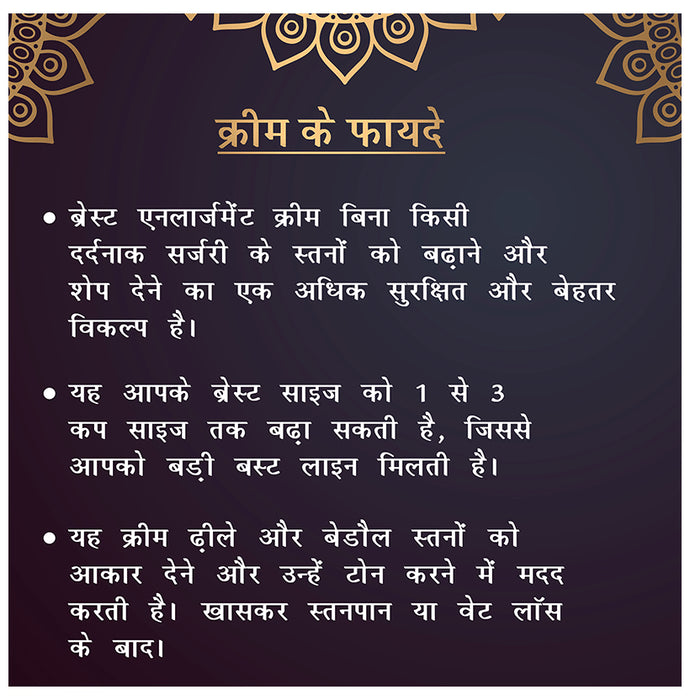 क्रीम के फायदे
• ब्रेस्ट एनलार्जमेंट क्रीम बिना किसी
दर्दनाक सर्जरी के स्तनों को बढ़ाने और
शेप देने का एक अधिक सुरक्षित और बेहतर
विकल्प है।
• यह आपके ब्रेस्ट साइज को 1 से 3
कप साइज तक बढ़ा सकती है, जिससे
आपको बड़ी बस्ट लाइन मिलती है।
• यह क्रीम ढ़ीले और बेडौल स्तनों को
आकार देने और उन्हें टोन करने में मदद
करती है। खासकर स्तनपान या वेट लॉस
के बाद।